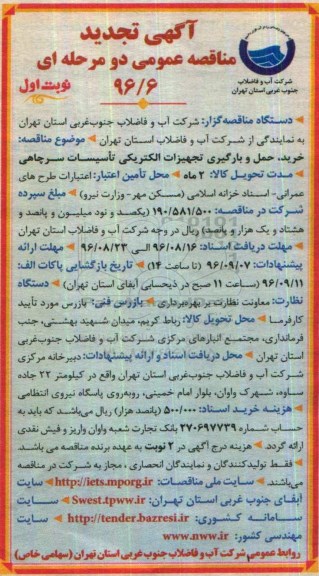 آگهی تجدید
مناقصه عمومی دو مرحله ای
۹۶/۶
نوبت اول
شرکت آب و فاضلاب
جنوب غربی استان تهران
دستگاه مناقصه‌گزار: شرکت آب و فاضلاب جنوب‌غربی استان تهران
به نمایندگی از شرکت آب و فاضلاب استان تهران موضوع مناقصه:
خرید، حمل و بارگیری تجهیزات الکتریکی تأسیسات سرچاهی
مدت تحویل کالا: ۲ ماه محل تأمین اعتبار: اعتبارات طرح های
عمرانی- اسناد خزانه اسلامی (مسکن مهر- وزارت نیرو) مبلغ سپرده
شرکت در مناقصه: ۱۹۰/۵۸۱/۵۰۰ (یکصد و نود میلیون و پانصد و
هشتاد و یک هزار و پانصد) ریال در وجه شرکت آب و فاضلاب استان تهران
مهلت دریافت اسناد: ۹۶/۰۸/۱۶ الی ۹۶/۰۸/۲۳ مهلت ارائه
پیشنهادات: ۹۶/۰۹/۰۷ (تا ساعت ۱۴) تاریخ بازگشایی پاکات الف:
۹۶/۰۹/۱۱ (ساعت ۱۱ صبح در ذیحسابی آبفای استان تهران) دستگاه
نظارت: معاونت نظارت بر بهره‌برداری بازرس فنی: بازرس مورد تأیید
کارفرما محل تحویل کالا: رباط کریم، میدان شهید بهشتی، جنب
فرمانداری، مجتمع انبارهای مرکزی شرکت آب و فاضلاب جنوب‌غربی
استان تهران محل دریافت اسناد و ارائه پیشنهادات: دبیرخانه مرکزی
شرکت آب و فاضلاب جنوب‌غربی استان تهران واقع در کیلومتر ۲۲ جاده
ساوه، شهرک واوان، بلوار امام خمینی، روبه‌روی پاسگاه نیروی انتظامی
هزینه خرید اسناد: ۵۰۰/۰۰۰ (پانصد هزار) ریال می‌باشد که باید به
حساب شماره ۲۷۰۶۹۷۷۳۹ بانک تجارت شعبه واوان واریز و فیش نقدی
ارائه گردد. هزینه درج آگهی در ۲ نوبت به عهده برنده مناقصه می باشد.
فقط تولیدکنندگان و نمایندگان انحصاری، مجاز به شرکت در مناقصه
می‌باشند. سایت ملی مناقصات: http://iets.mporg.ir سایت
آبفای جنوب غربی استان تهران: Swest.tpww.ir سایت
سامانه کشوری: http://tender.bazresi.ir سایت
مهندسی کشور: www.nww.ir
روابط عمومی شرکت آب و فاضلاب جنوب غربی استان تهران (سهامی خاص)